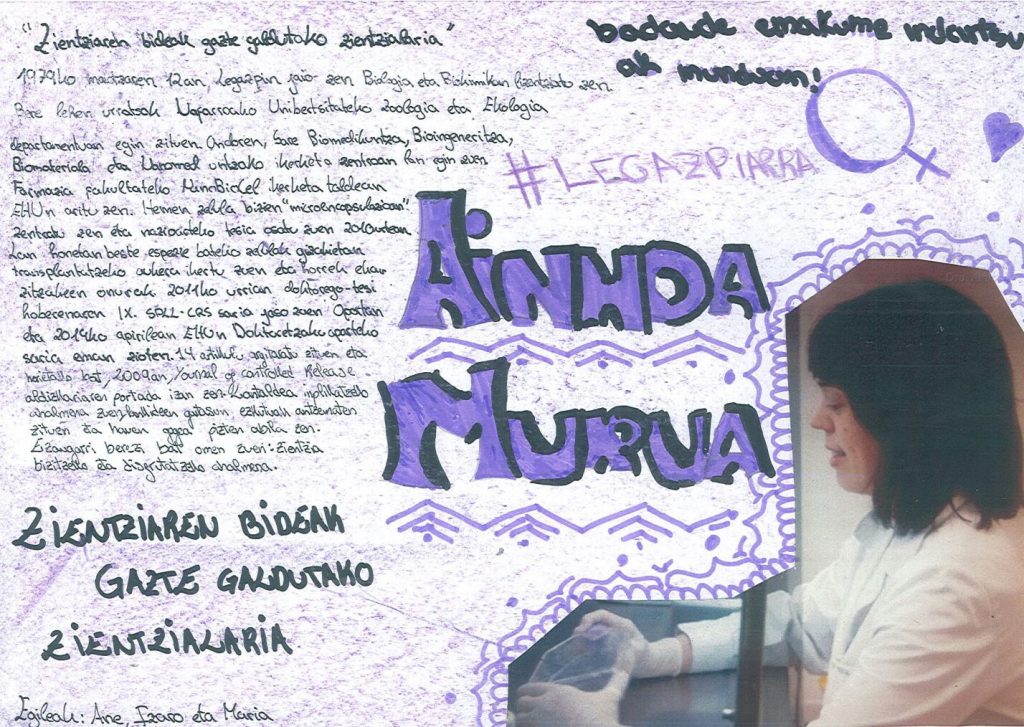 "Zientziaren bideak gazte galdutako zientzialaria"
1979ko martxoaren 12an, Legazpin jaio zen Biologia eta Biokimikan lizentziatu zen.
Bere lehen urratsak Nafarroako Unibertsitateko zoologia eta Ekologia
departamentuan egin zituen. Ondoren, Sare Biomedikuntza, Bioingeneritza,
Biomaterialа eta Nanomed izeneko ikerketa zentroan lan egin zuen
Farmazia fakultateko NanoBioCel ikerketa taldean
EHUn aritu zen. Hemen zelula bizien "microencapsulazioan"
zentratu zen eta nazioarteko tesia osatu zuen 2010. urtean.
Lan honetan beste espezie bateko zelulak gizakietan
transplantatzeko aukera ikertu zuen eta horrek ekar
zitzakeen onurak. 2011ko urrian doktorego-tesi
hoberenaren IX. saria jaso zuen
eta 2014ko apirilean EHUn Doktoretzako aparteko
saria eman zioten. 14 artikulu argitaratu zituen eta
horietako bat, 2009an, Journal of controlled Release
aldizkariaren portada izan zen. Lantaldea inplikatzeko
ahalmena zuen,
zituen eta hauen gogoa pizten abila zen.
Ezaugarri berezi bat omen zuen: Zientzia
bizitzeko eta disfrutatzeko ahalmena.
badaude emakume indartsu
ak munduan!
#LEGAZPIARRA
AiNHOA
MURUA
ZIENTZIAREN BIDEAK
GAZTE GALDUTAKO
ZIENTZIALARIA
Egileak: Ane, Izaro eta Maria